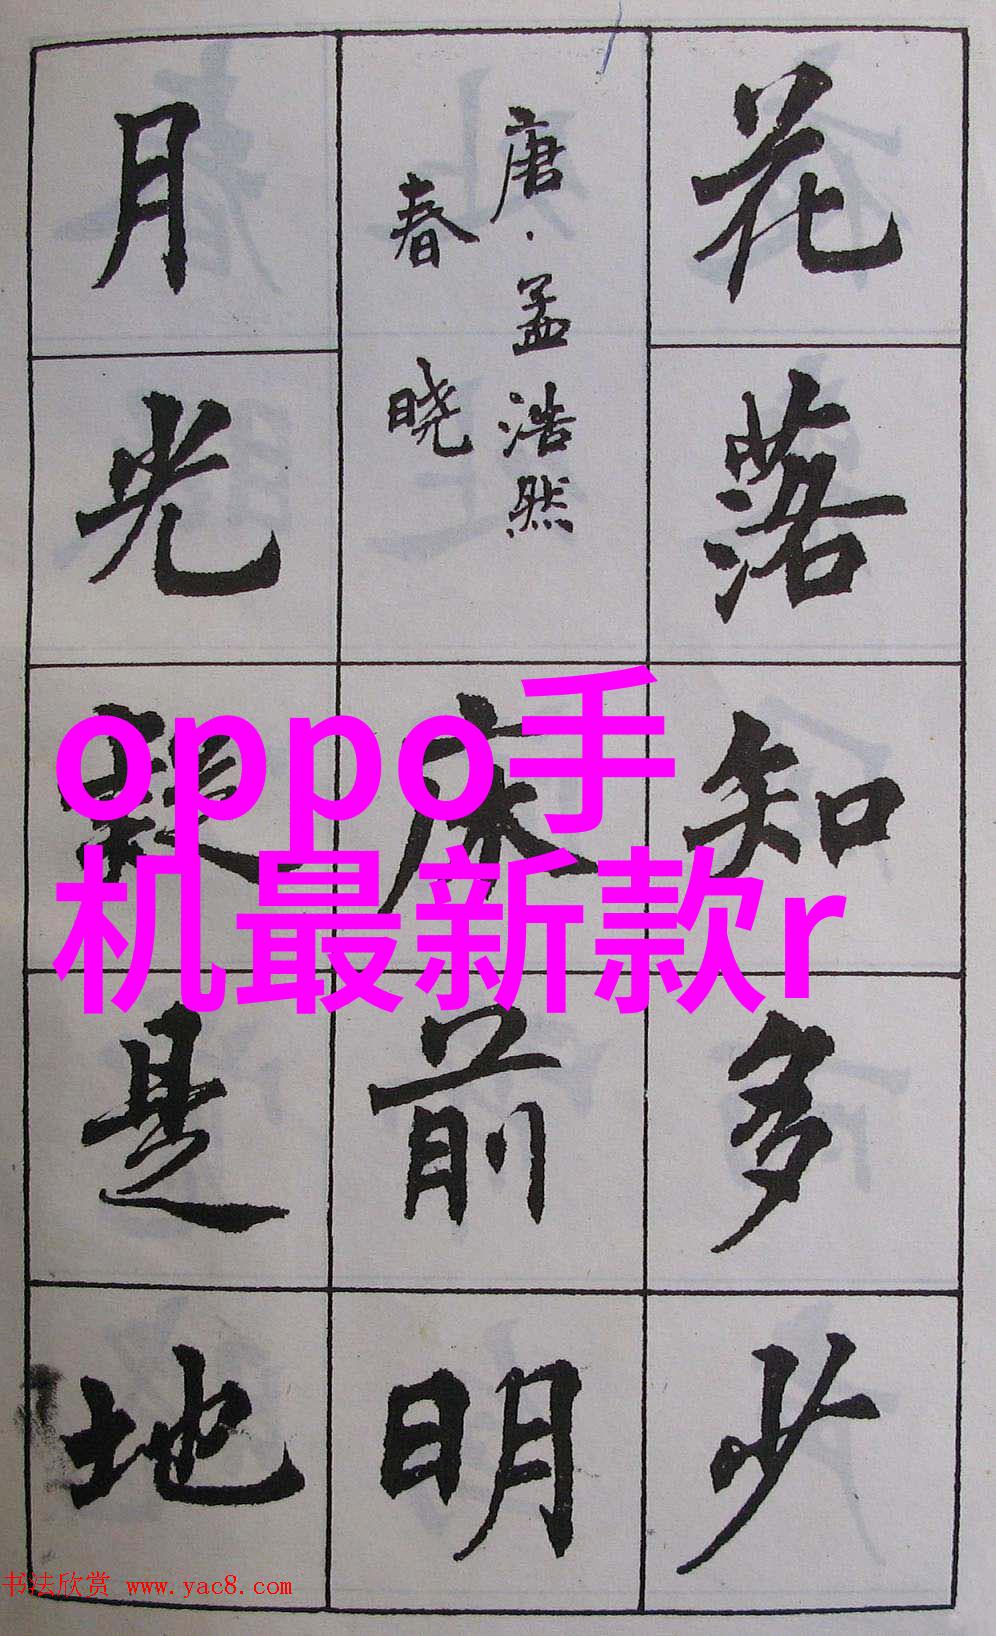 花落知多少
唐·孟浩然
春晓
床前明
月光疑是地
oppo手
机最新款r
书法欣赏 www.yac8.com